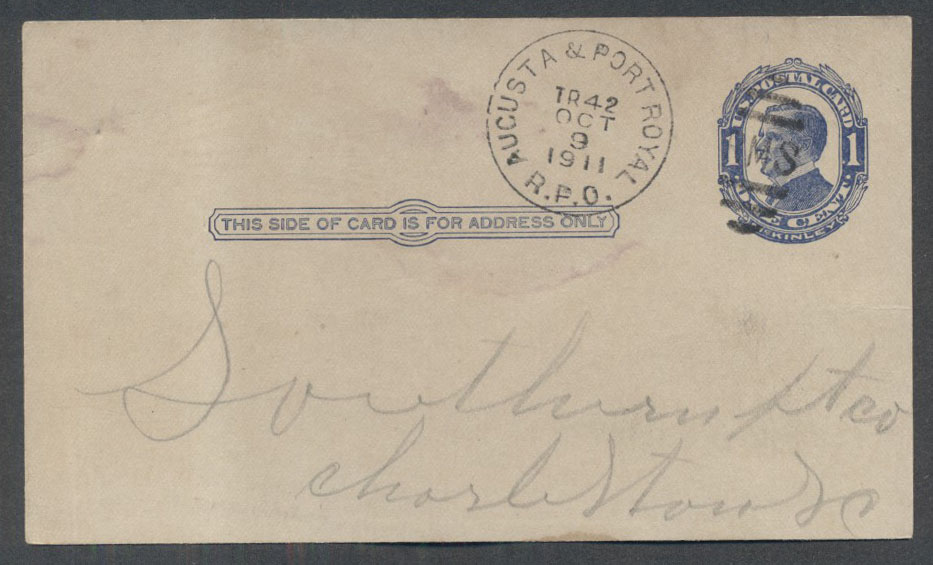 AUGUSTA & PORT ROYAL
TR 42
OCT
9
1911
R.P.O.
U.S. POSTAL CARD
1 1
RMS
McKINLEY
THIS SIDE OF CARD IS FOR ADDRESS ONLY
Southern
Charleston SC